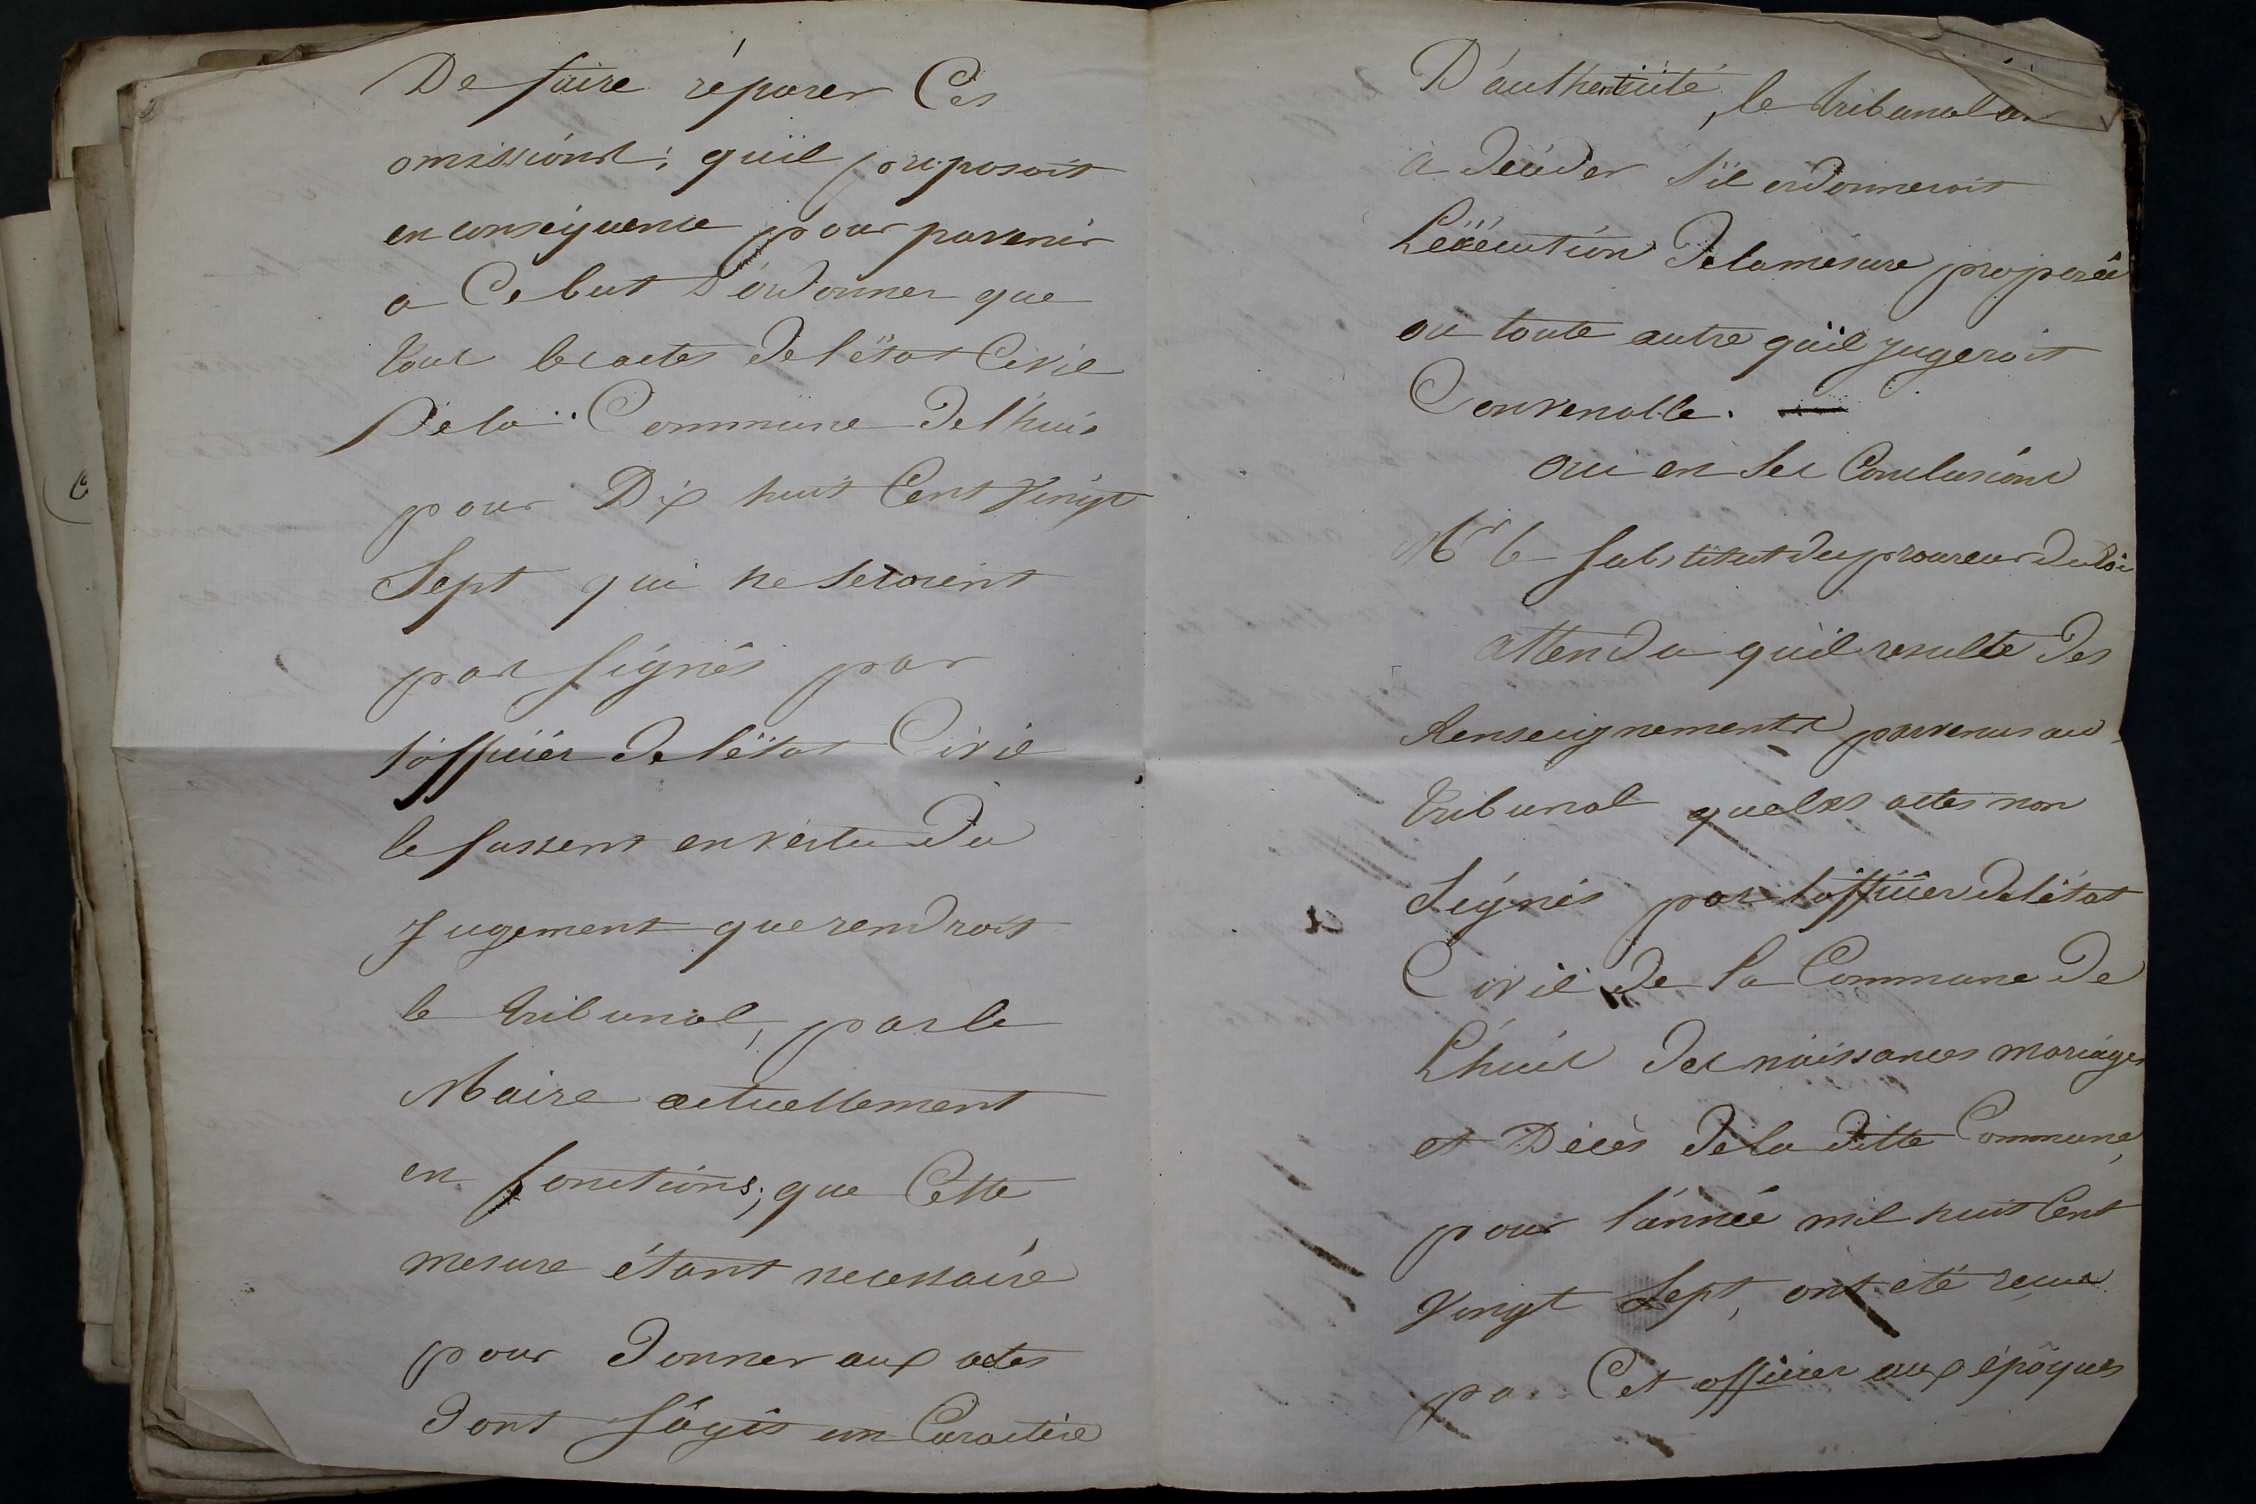 De faire réparer Ces
omissions; qu'il proposoit
en conséquence pour parvenir
a Ce but D'ordonner que
tous les actes De l'état Civil
De la Commune De lhuis
pour Dix huit Cent Vingt
Sept qui ne seroient
pas signés par
l'officier De l'état Civil
le fussent en vertu Du
Jugement que rendroit
le tribunal, par le
Maire actuellement
en fonctions; que Cette
mesure étant necessaire
pour Donner aux actes
Dont s'agit un Caractère
D'authenticité, le tribunal
à Décider s'il ordonneroit
L'éxécution De la mesure proposée
ou toute autre qu'il jugeroit
Convenable.
oui en ses Conclusions
Mr le substitut du procureur Du Roi
attendu qu'il resulte Des
Renseignements parvenus au
tribunal que les actes non
Signés par l'officier De l'état
Civil De la Commune De
Lhuis Des naissances mariages
et Décès De la Ditte Commune,
pour l'année mil huit Cent
Vingt Sept, ont été reçus
par Cet officier aux époques